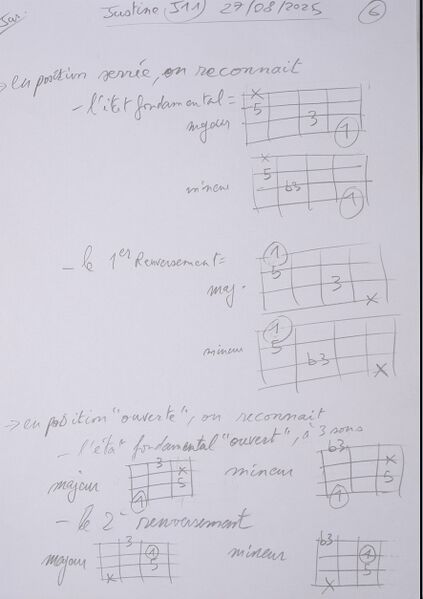 Justine (J11) 27/08/2025 6
→ en position serrée, on reconnait
- l'état fondamental =
majeur
x
5
3
1
mineur
x
5
b3
1
- le 1er Renversement =
maj.
1
5
3
x
mineur
1
5
b3
x
→ en position "ouverte", on reconnait
- l'éta" fondamental "ouvert", à 3 sons
majeur
3
x
5
1
mineur
b3
x
5
1
- le 2e renversement
majeur
3
1
5
x
mineur
b3
1
5
x